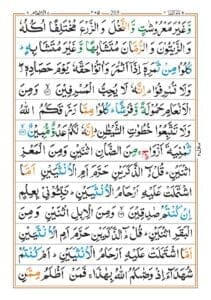 وَّغَيْرَ مَعْرُوْشٰتٍ وَّالنَّخْلَ وَالزَّرْعَ مُخْتَلِفًا اُكُلُهٗ
وَالزَّيْتُوْنَ وَالرُّمَّانَ مُتَشَابِهًا وَّغَيْرَ مُتَشَابِهٍ ؕ
كُلُوْا مِنْ ثَمَرِهٖۤ اِذَاۤ اَثْمَرَ وَاٰتُوْا حَقَّهٗ يَوْمَ حَصَادِهٖ ۖ
وَلَا تُسْرِفُوْا ؕ اِنَّهٗ لَا يُحِبُّ الْمُسْرِفِيْنَ ۙ وَمِنَ
الْاَنْعَامِ حَمُوْلَةً وَّفَرْشًا ؕ كُلُوْا مِمَّا رَزَقَكُمُ اللّٰهُ
وَلَا تَتَّبِعُوْا خُطُوٰتِ الشَّيْطٰنِ ؕ اِنَّهٗ لَكُمْ عَدُوٌّ مُّبِيْنٌ ۙ
ثَمٰنِيَةَ اَزْوَاجٍ ۚ مِنَ الضَّاْنِ اثْنَيْنِ وَمِنَ الْمَعْزِ
اثْنَيْنِ ؕ قُلْ ءٰٓالذَّكَرَيْنِ حَرَّمَ اَمِ الْاُنْثَيَيْنِ اَمَّا
اشْتَمَلَتْ عَلَيْهِ اَرْحَامُ الْاُنْثَيَيْنِ ؕ نَبِّـُٔوْنِيْ بِعِلْمٍ
اِنْ كُنْتُمْ صٰدِقِيْنَ ۙ وَمِنَ الْاِبِلِ اثْنَيْنِ وَمِنَ
الْبَقَرِ اثْنَيْنِ ؕ قُلْ ءٰٓالذَّكَرَيْنِ حَرَّمَ اَمِ الْاُنْثَيَيْنِ
اَمَّا اشْتَمَلَتْ عَلَيْهِ اَرْحَامُ الْاُنْثَيَيْنِ ؕ اَمْ كُنْتُمْ
شُهَدَآءَ اِذْ وَصّٰىكُمُ اللّٰهُ بِهٰذَا ۚ فَمَنْ اَظْلَمُ مِمَّنِ